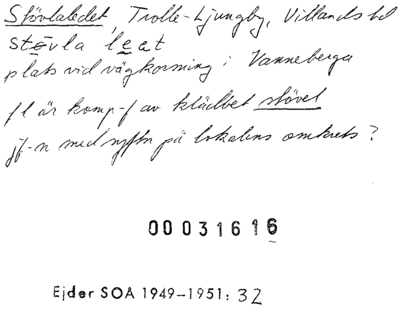 Stövlaledet, Trolle-Ljungby, Villands hd
stövla leat
plats vid vägkorsning i Vanneberga
fl är komp-f av klädbet stövel
jf-n med syftn på lokalens omkrets?
00031616
Ejder SOA 1949-1951: 32